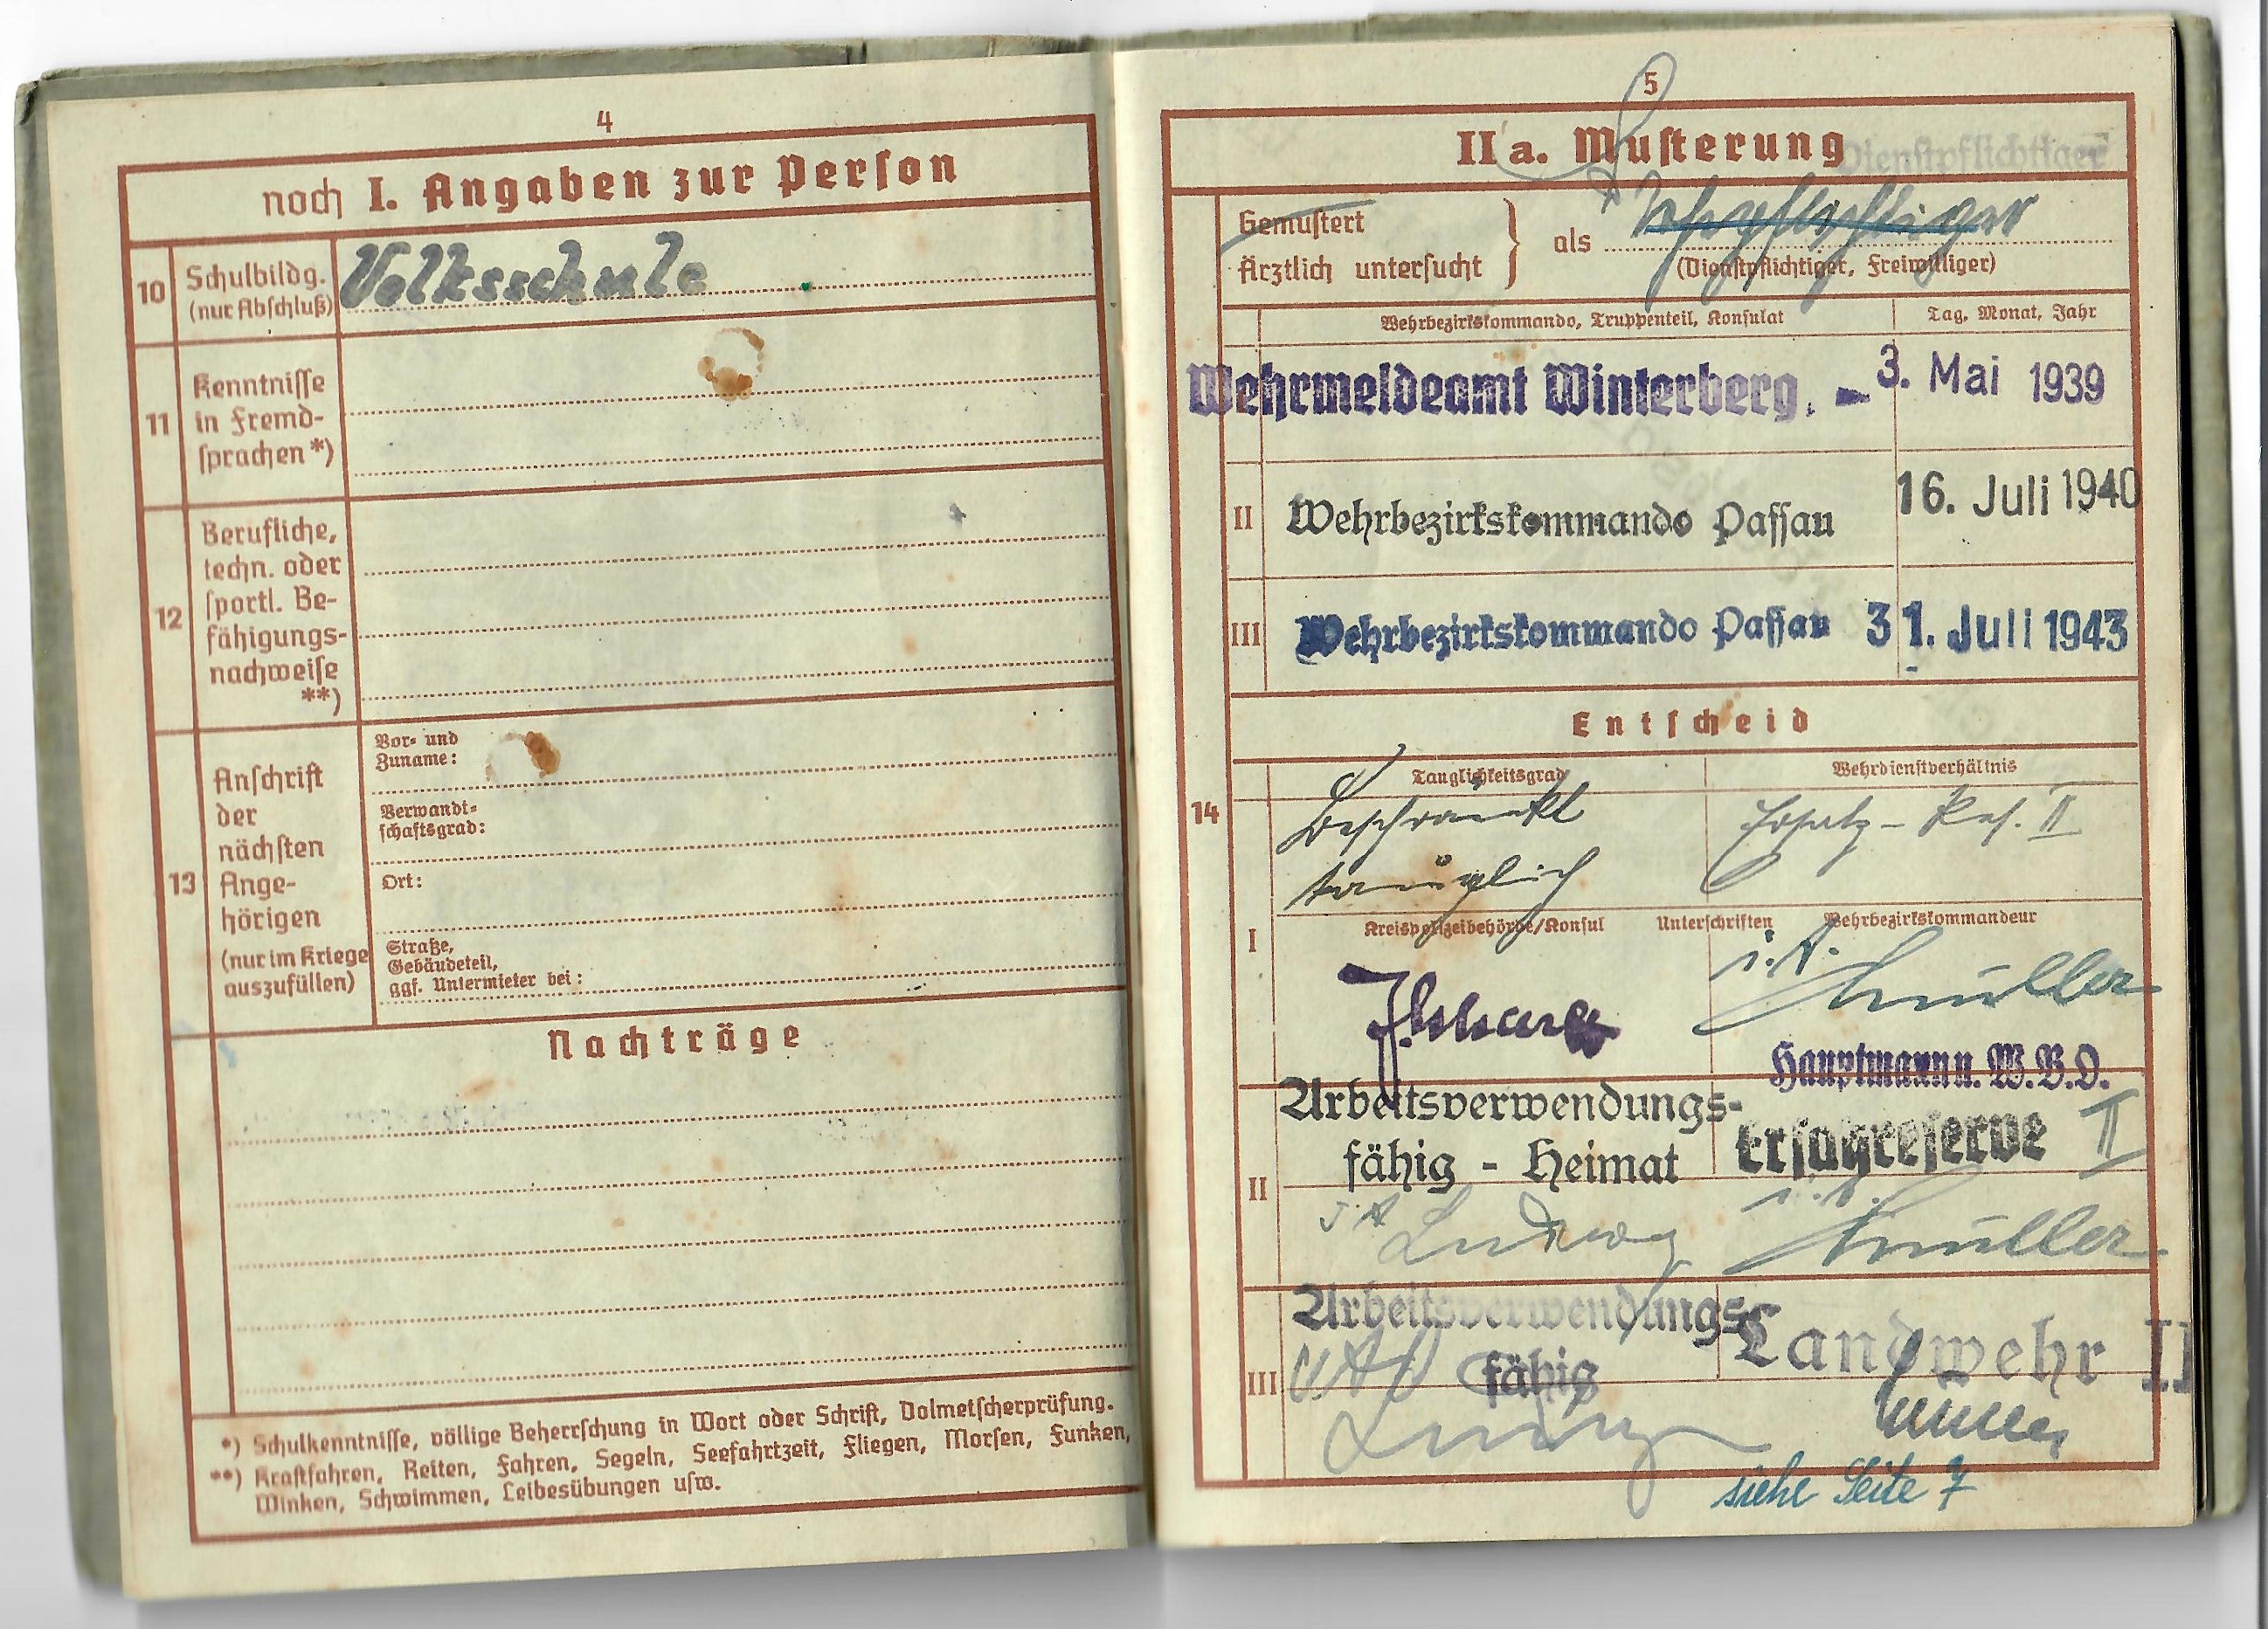 4
noch I. Angaben zur Person
10 Schulbildg. (nur Abschluß) Volksschule
11 Kenntnisse in Fremd-
sprachen *)
12 Berufliche,
techn. oder
sportl. Be-
fähigungs-
nachweise
**)
13 Anschrift
der
nächsten
Ange-
hörigen
(nur im Kriege
auszufüllen)
Vor- und
Zuname:
Verwandt-
schaftsgrad:
Ort:
Straße,
Gebäudeteil,
ggf. Untermieter bei:
Nachträge
*) Schulkenntnisse, völlige Beherrschung in Wort oder Schrift, Dolmetscherprüfung.
**) Kraftfahren, Reiten, Fahren, Segeln, Seefahrtzeit, Fliegen, Morsen, Funken,
Winken, Schwimmen, Leibesübungen usw.
5
II a. Musterung
Dienstpflichtiger
Gemustert
Ärztlich untersucht } als
(Dienstpflichtiger, Freiwilliger)
Wehrbezirkskommando, Truppenteil, Konsulat
Tag, Monat, Jahr
Wehrmeldeamt Winterberg. - 3. Mai 1939
II Wehrbezirkskommando Passau 16. Juli 1940
III Wehrbezirkskommando Passau 31. Juli 1943
Entscheid
14
Tauglichkeitsgrad
Wehrdienstverhältnis
beschränkt
tauglich
Ersatz-Res. II
I
Kreispolizeibehörde/Konsul Unterschriften Wehrbezirkskommandeur
i.A.
Müller
Hauptmann u. W.B.O.
II
Arbeitsverwendungs-
fähig - Heimat
Ersatzreserve II
Ludwig
Müller
III
Arbeitsverwendungs-
fähig
Landwehr II
siehe Seite 7